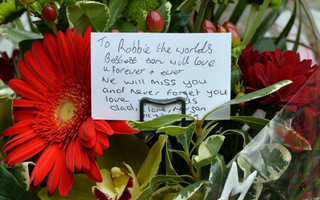 To Robbie the worlds
Bestest son will love
u forever + ever
We will miss you
and never forget you
love
dad,